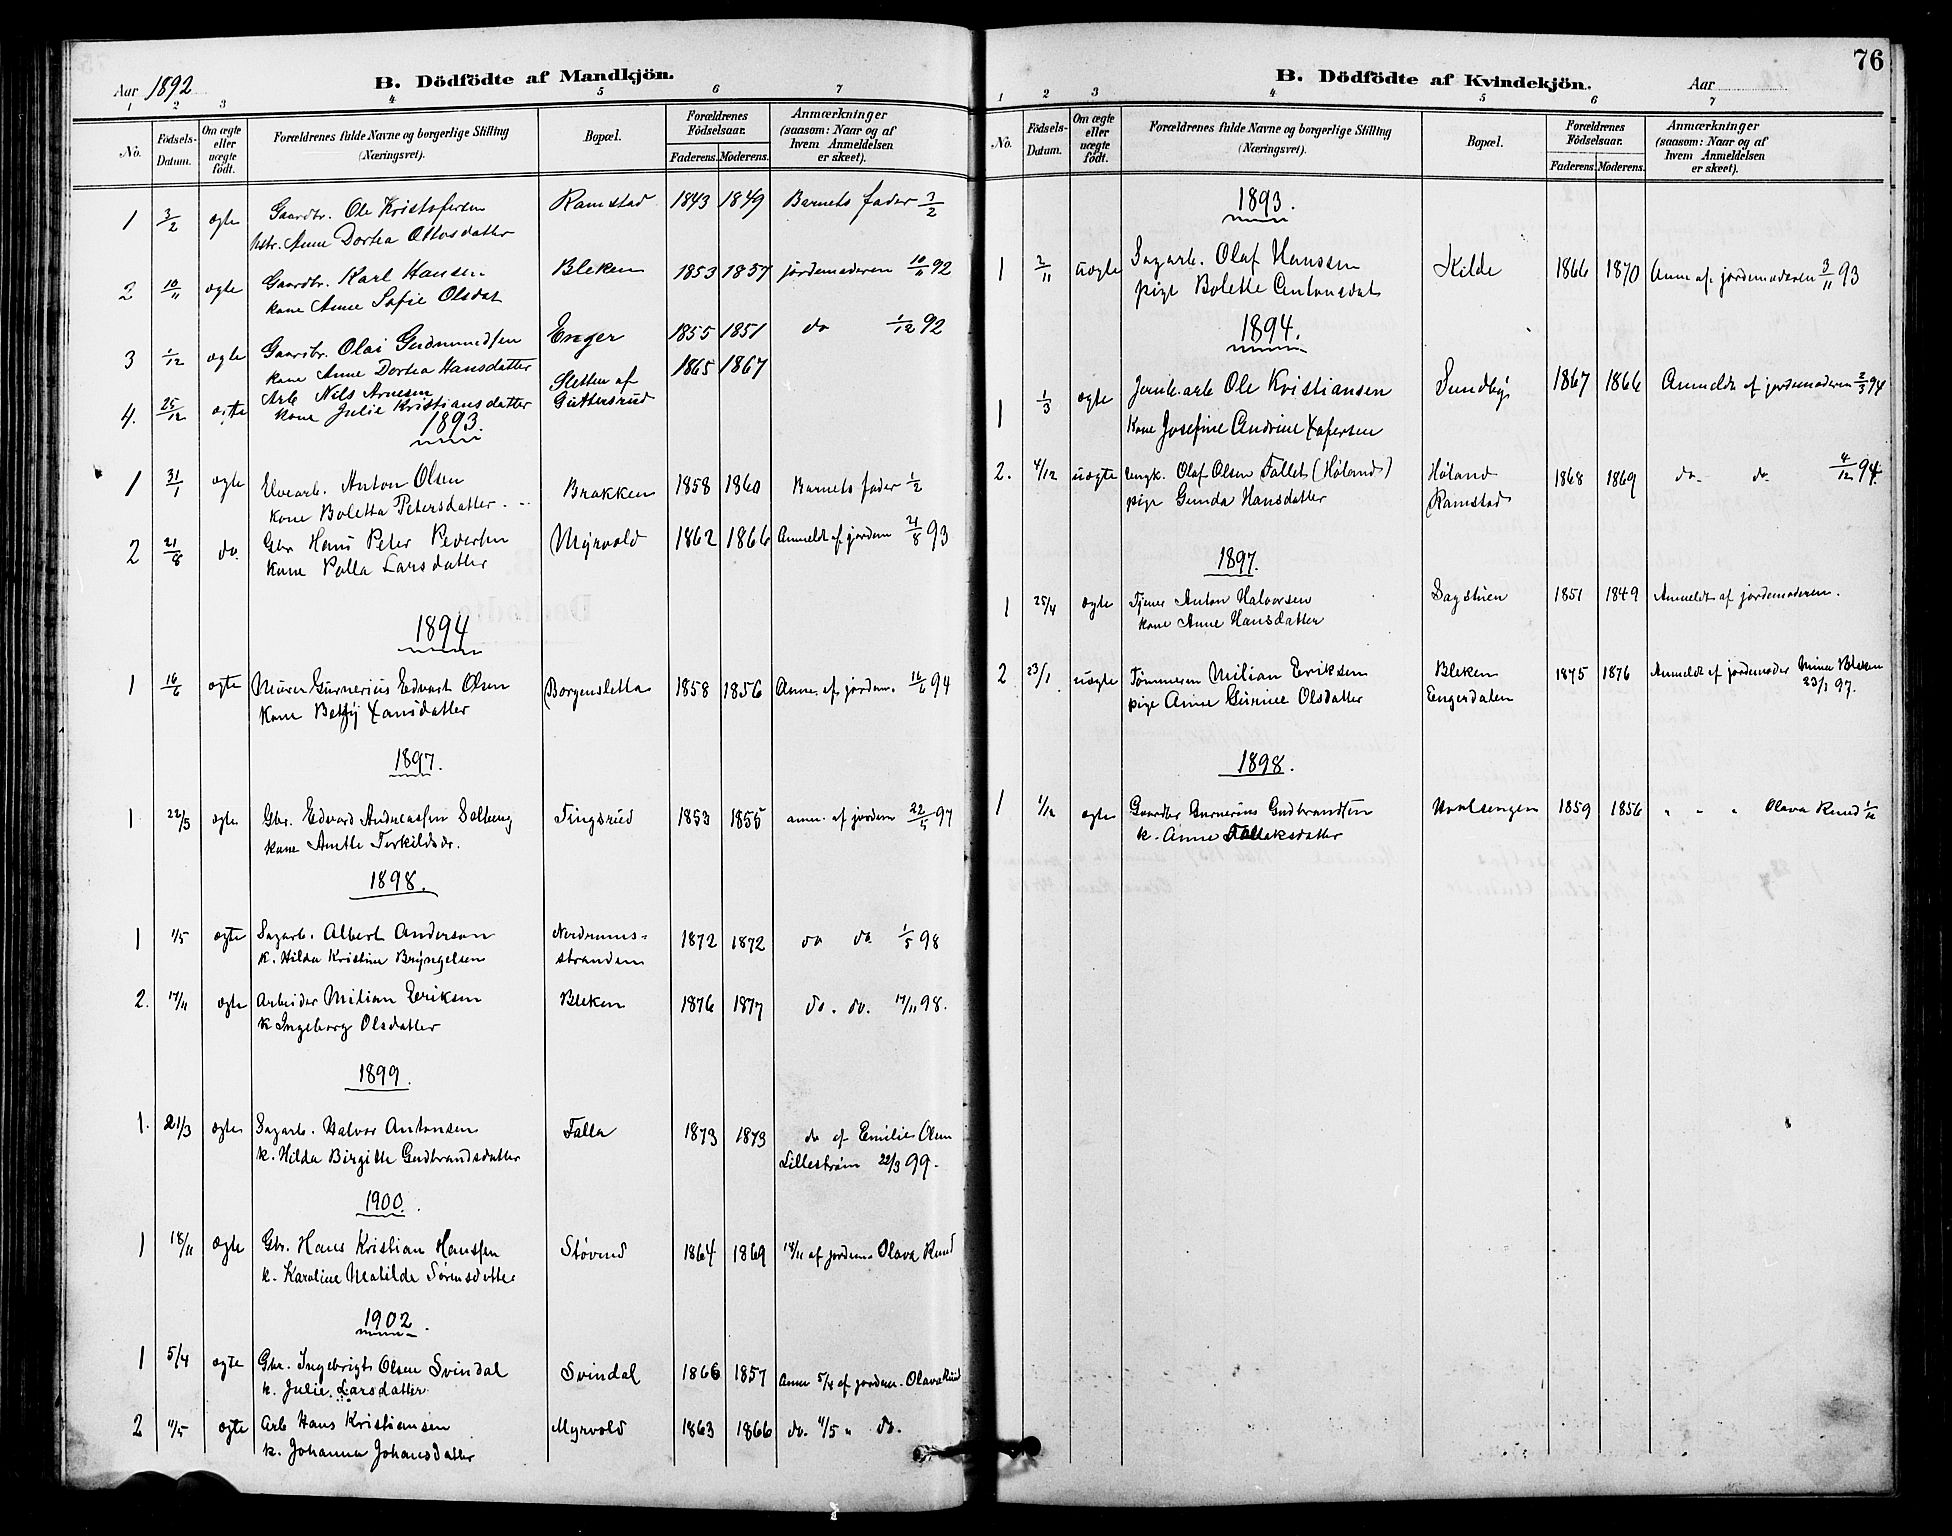 Aar 1892
B. Dödfödte af Mandkjön.
1 2 3 4 5 6 7
No.
Födsels-Datum.
Om ægte eller uægte födt.
Forældrenes fulde Navne og borgerlige Stilling (Næringsvei).
Bopæl.
Forældrenes Födselsaar.
Faderens. Moderens.
Anmærkninger (saasom: Naar og af hvem Anmeldelsen er skeet).
1 3/2 ægte Gaardbr. Ole Kristofersen Ramstad 1843 1849 Barnets fader 3/2
hstr. Anne Dortea Ottosdatter
2 10/11 ægte Gaardbr. Karl Hansen Bleken 1853 1857 jordemoderen 10/11 92
kone Anne Sofie Olsdat
3 1/12 ægte Gaardbr. Olai Gudmundsen Enger 1855 1851 do 1/12 92
kone Anne Dortea Hansdatter
4. 25/12 ægte Arb Nils Arnesen Sletten af 1865 1867
kone Julie Kristiansdatter Guttersrud
1893
1 31/1 ægte Elvearb. Anton Olsen Brakken 1858 1860 Barnets fader 1/2
kone Boletta Petersdatter.
2 21/8 do. Gbr Hans Peter Pedersen Myrvold 1862 1866 Anmeldt af jordem 21/8 93
kone Palla Larsdatter
1894
1 16/6 ægte Murer Gurnerius Edvart Olsen Borgensletta 1858 1856 Anm. af jordem. 16/6 94
Kone Betsy Xansdatter
1897.
1 22/5 ægte Gbr. Edvard Andreassen Solberg Tingsrud 1853 1855 anm. af jordem 22/5 97
kone Amtle Terkildsdr.
1898.
1 1/5 ægte Sagarb. Albert Anderson Nordrums- 1872 1872 do do. 1/5 98
k. Hilda Kristine Bryngelsen stranden
2. 17/11 ægte Arbeider Milian Eriksen Bleken 1876 1877 do. do. 17/11 98.
k Ingeborg Olsdatter
1899.
1. 21/3 ægte Sagarb. Halvor Antonsen Falla 1873 1873 do af Emilie Olsen
k. Hilda Birgitte Gudbrandsdatter Lillestrøm 22/3 99.
1900.
1 18/11 ægte Gbr. Hans Kristian Hanssen Støvind 1864 1869 18/11 af jordem. Olava Rund
k. Karoline Matilde Sørensdatter
1902.
1 5/4 ægte Gbr. Ingebrigt Olsen Svindal Svindal 1866 1857 Anm 5/4 af jordem. Olava Rund
k. Julie Larsdatter
2 11/5 ægte Arb Hans Kristiansen Myrvold 1863 1866 do. 11/5 " do.
k. Johanna Johansdatter
76
B. Dödfödte af Kvindekjön.
Aar
1 2 3 4 5 6 7
No.
Födsels-Datum.
Om ægte eller uægte födt.
Forældrenes fulde Navne og borgerlige Stilling (Næringsvei).
Bopæl.
Forældrenes Födselsaar.
Faderens. Moderens.
Anmærkninger (saasom: Naar og af hvem Anmeldelsen er skeet).
1893.
1 2/11 uægte Sagarb. Olaf Hanssen Kilde 1866 1870 Anm af jordemoderen 3/11 93
pige Bolette Antonsdat
1894.
1 1/3 ægte Jernb.arb Ole Kristiansen Sundby 1867 1866 Anmeldt af jordemoderen 2/3 94
Kone Josefine Andrine Xofersen
2. 4/12 uægte Ungk. Olaf Olsen Fallet (Høland) Høland 1868 1869 do. do. 4/12 94.
pige Gunda Hansdatter Ramstad
1897.
1 25/4 ægte Tjener Anton Halvorsen Sagstuen 1851 1849 Anmeldt af jordemoderen.
kone Anne Hansdatter
2 23/1 uægte Tømmerm Milian Eriksen Bleken 1875 1876 Anmeldt af jordemoder Mina Bleken
pige Anne Gurine Olsdatter Engerdalen 23/1 97.
1898.
1 1/12 ægte Gaardbr Gurnerius Gudbrandsen 1859 1856 " " " Olava Rund 1/12
k. Anne Tollaksdatter